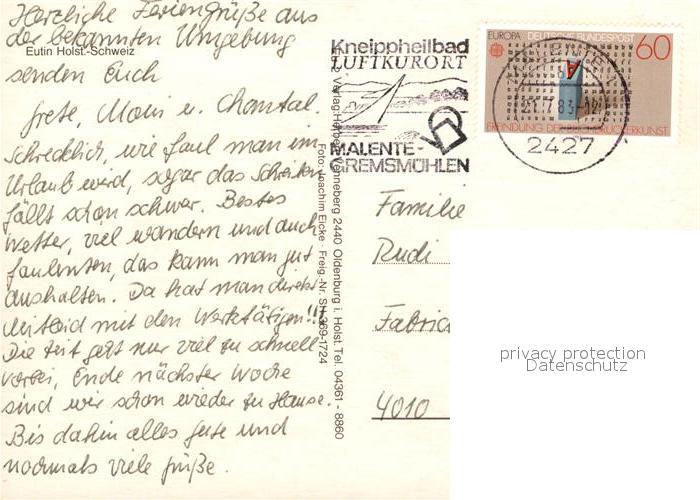 Herzliche Feriengrüße aus
der bekannten Umgebung
Eutin Holst.-Schweiz
senden Euch
Grete, Moni u. Chantal.
Schrecklich, wie faul man im
Urlaub wird, sogar das Schreiben
fällt schon schwer. Bestes
Wetter, viel wandern und auch
faulenzen, das kann man gut
aushalten. Da hat man direkt
Mitleid mit den Werktätigen!!!
Die Zeit geht nur viel zu schnell
vorbei, Ende nächster Woche
sind wir schon wieder zu Hause.
Bis dahin alles Gute und
nochmals viele Grüße.
Verlag Henneberg 2440 Oldenburg i. Holst. Tel. 04361 - 8860
Foto: Joachim Eicke · Freig.-Nr. SH 369-1724
Kneippheilbad
LUFTKURORT
MALENTE-
GREMSMÜHLEN
EUROPA DEUTSCHE BUNDESPOST
60
ERFINDUNG DER BUCHDRUCKERKUNST
2427
Familie
Rudi
4010
privacy protection
Datenschutz